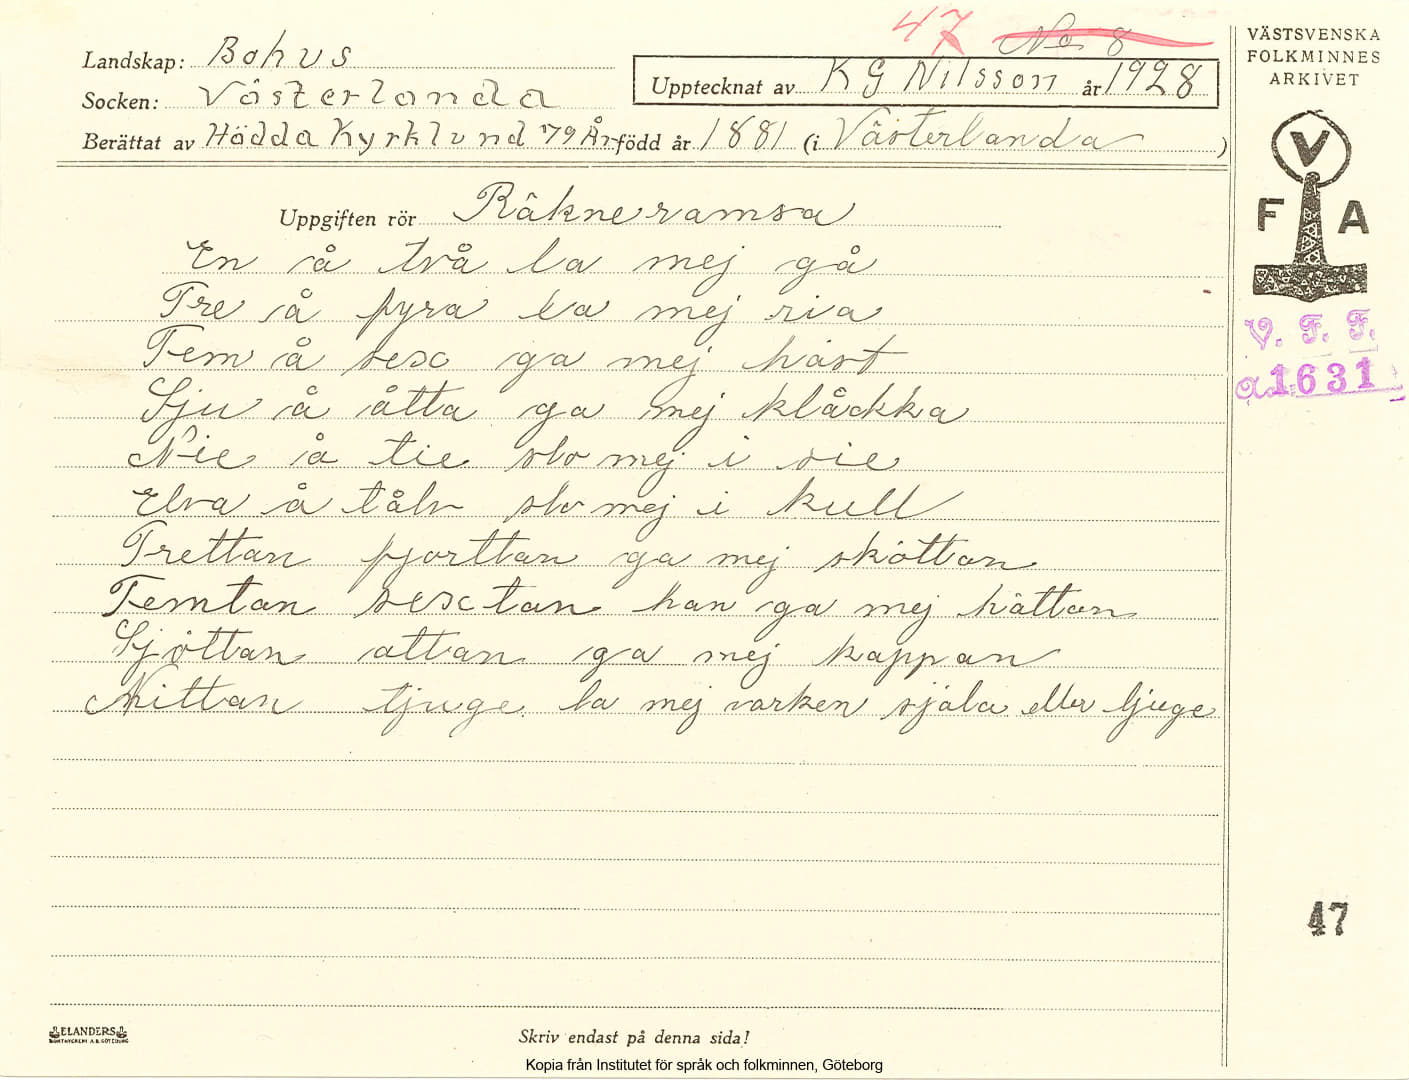 47 No 8
Landskap: Bohus
Socken: Västerlanda
Upptecknat av K G Nilsson år 1928
Berättat av Hädda Kyrklund 79 År född år 1881 (i Västerlanda)
Uppgiften rör Räkneramsa
En å två la mej gå
Tre å fyra la mej ria
Fem å sex ga mej häst
Sju å åtta ga mej klåckka
Nie å tie slo mej i sie
Elva å tålv slo mej i kull
Trettan fjorttan ga mej sköttan
Femtan sextan han ga mej hättan
Sjöttan attan ga mej kappan
Nittan tjuge la mej varken själa eller ljuge
VÄSTSVENSKA
FOLKMINNES
ARKIVET
V
F A
V. F. F.
a. 1631
47
ELANDERS
Skriv endast på denna sida!
Kopia från Institutet för språk och folkminnen, Göteborg